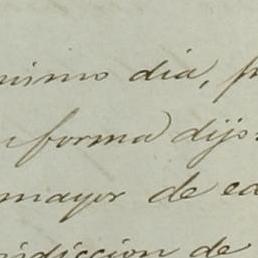 mismo dia, p
forma dijo:
mayor de ed
risdiccion de